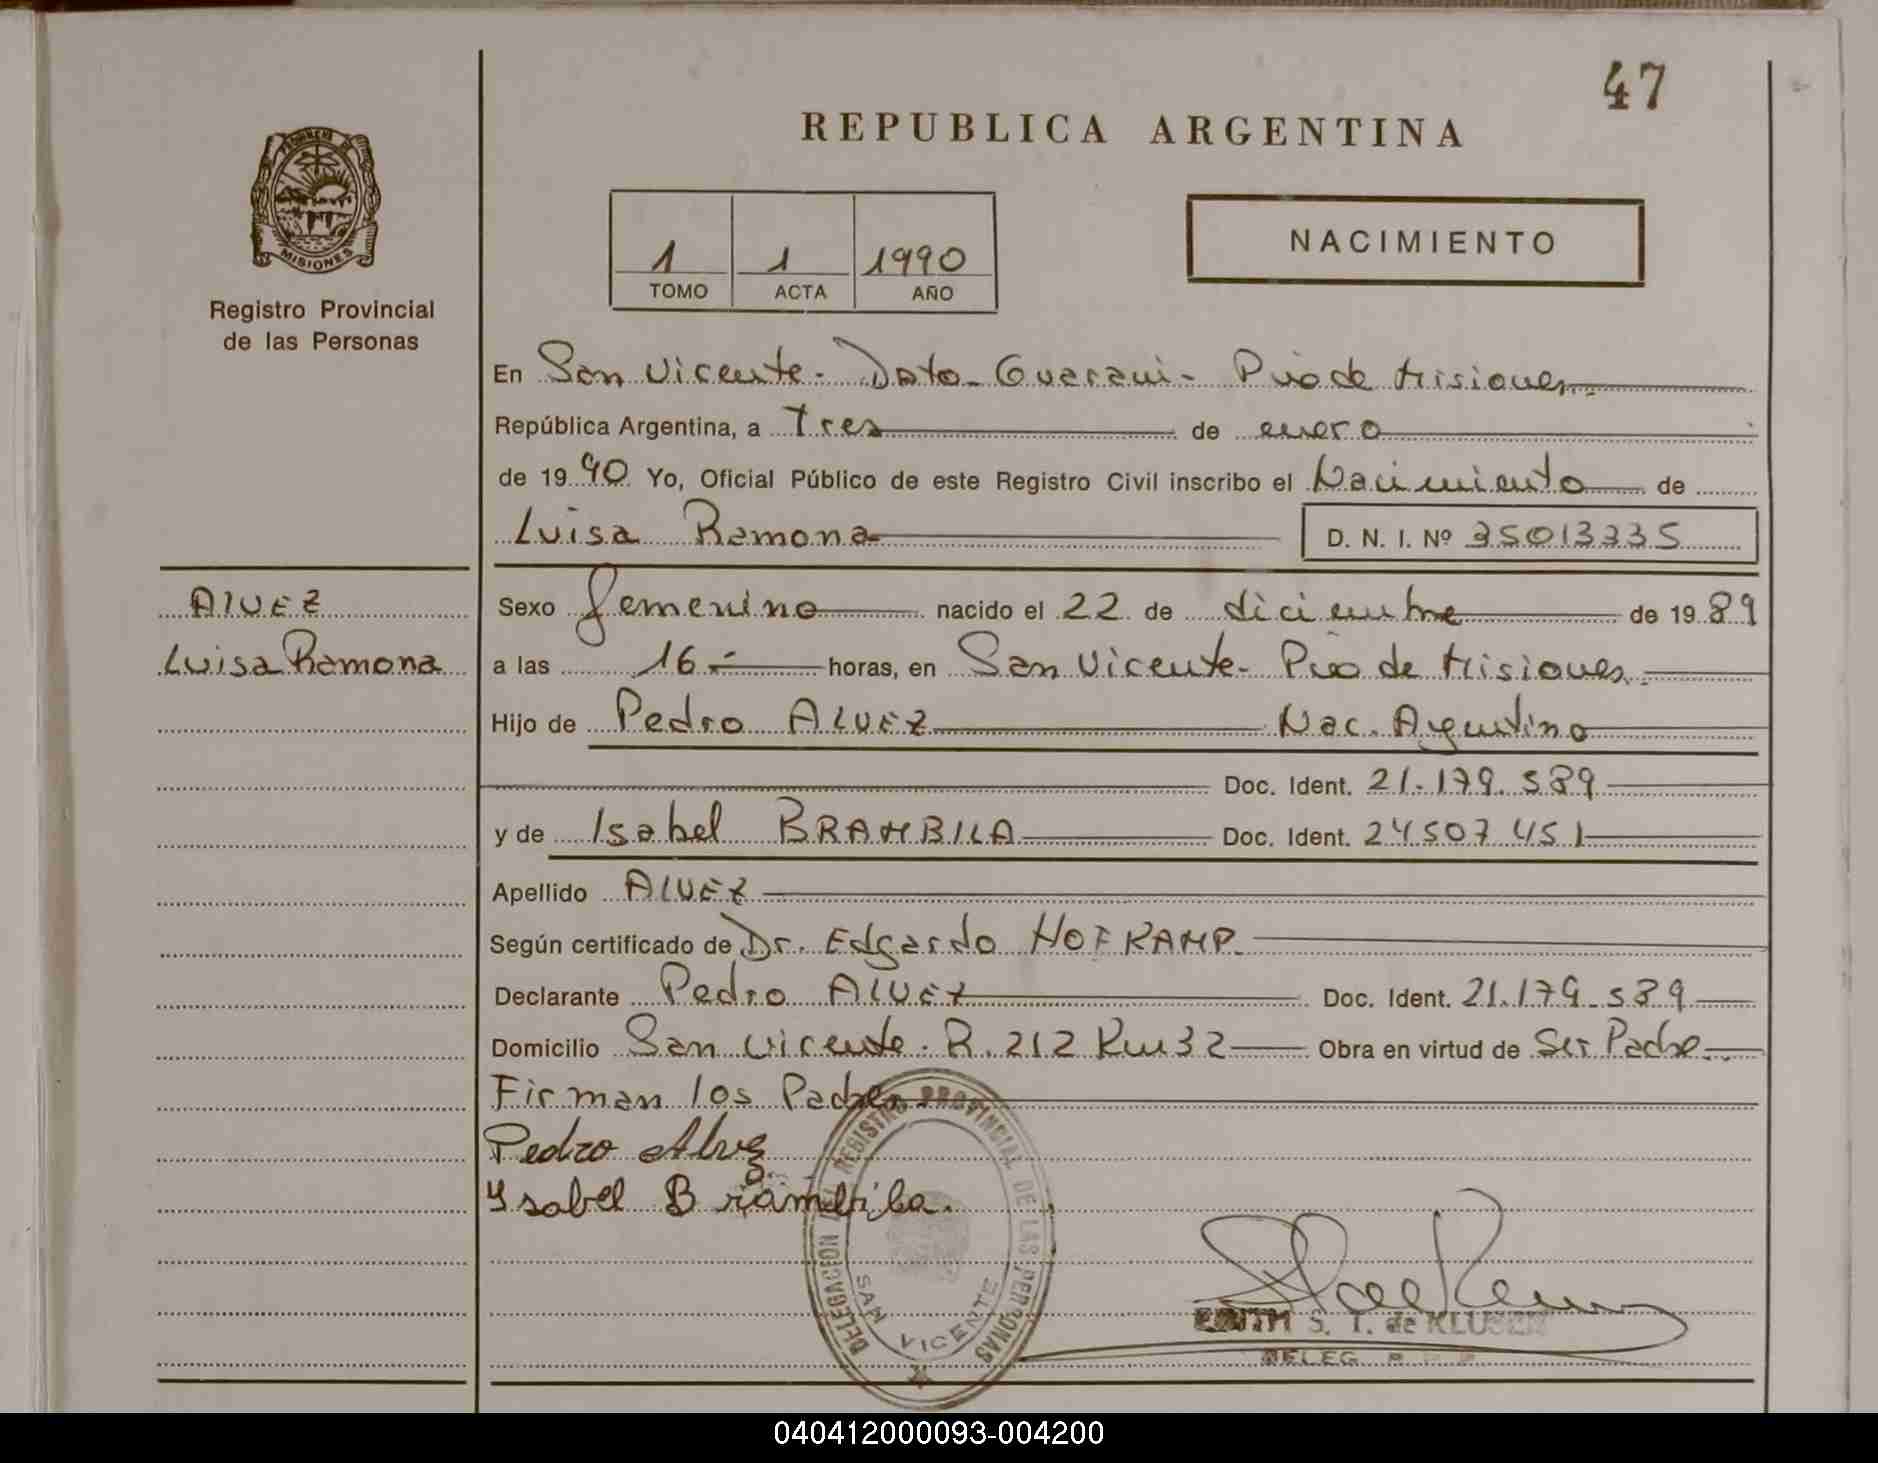 47
REPUBLICA ARGENTINA
PROVINCIA DE
MISIONES
Registro Provincial
de las Personas
1 1 1990
TOMO ACTA AÑO
NACIMIENTO
En San Vicente - Dpto - Guarani - Pvio de Misiones
República Argentina, a Tres de enero
de 1990 Yo, Oficial Público de este Registro Civil inscribo el Nacimiento de
Luisa Ramona D. N. I. Nº 35013335
ALVEZ
Luisa Ramona
Sexo femenino nacido el 22 de diciembre de 1989
a las 16 horas, en San Vicente - Pvio de Misiones
Hijo de Pedro ALVEZ Nac. Argentino
Doc. Ident. 21.179.589
y de Isabel BRAMBILA Doc. Ident. 24507451
Apellido ALVEZ
Según certificado de Dr. Edgardo HOFKAMP
Declarante Pedro ALVEZ Doc. Ident. 21.179.589
Domicilio San Vicente - R. 212 Km 32 Obra en virtud de Ser Padre
Firman los Padres
Pedro Alvez
Ysabel Brambila.
DELEGACION DEL REGISTRO PROVINCIAL DE LAS PERSONAS
SAN VICENTE
EDITH S. T. de KLUSEN
DELEG
040412000093-004200